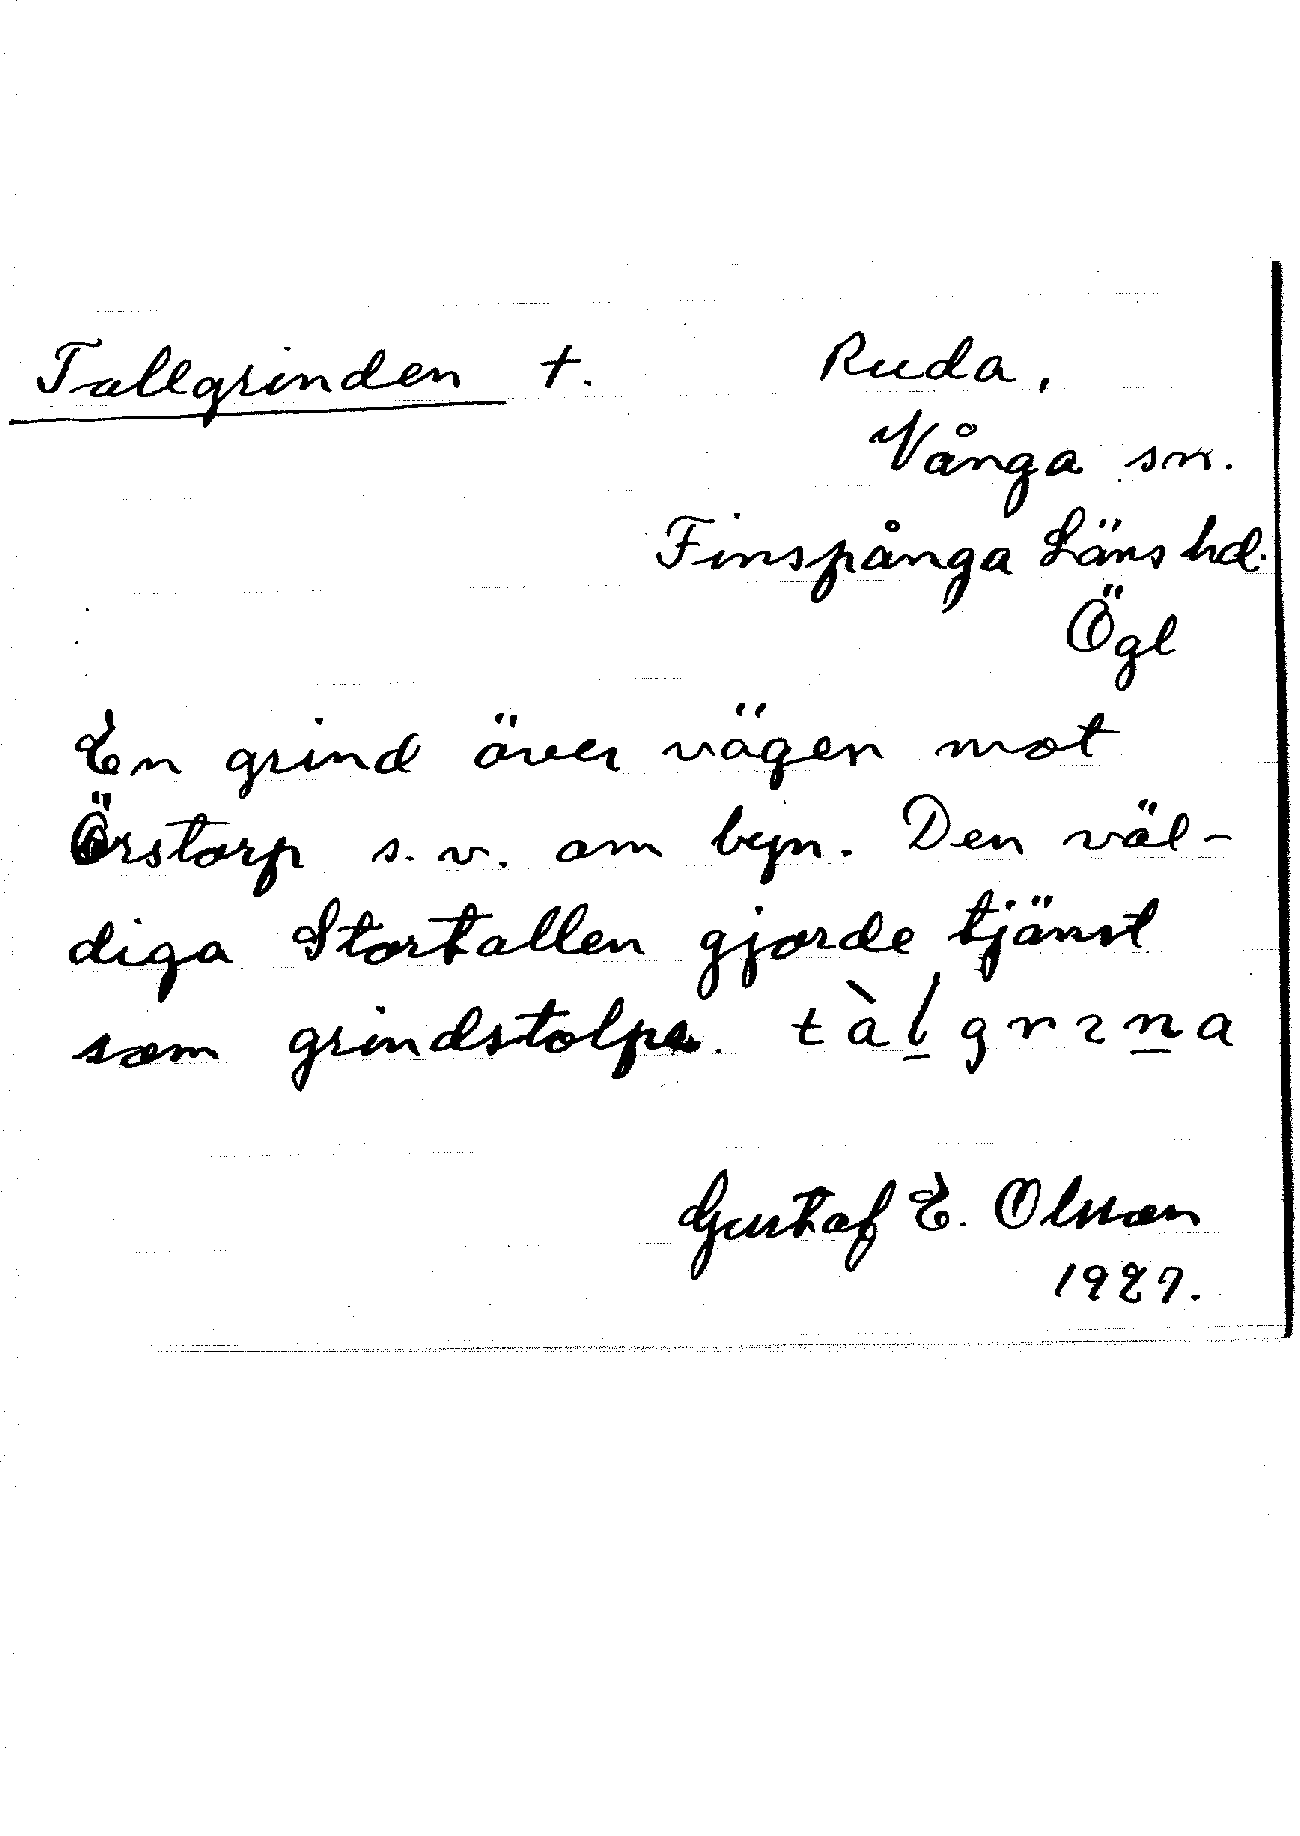 Tallgrinden †. Ruda,
Vånga sn.
Finspånga Läns hd.
Ögl
En grind över vägen mot
Örstorp s.v. om byn. Den väl-
diga Stortallen gjorde tjänst
som grindstolpe. tàlgrına
Gustaf E. Olsson
1927.